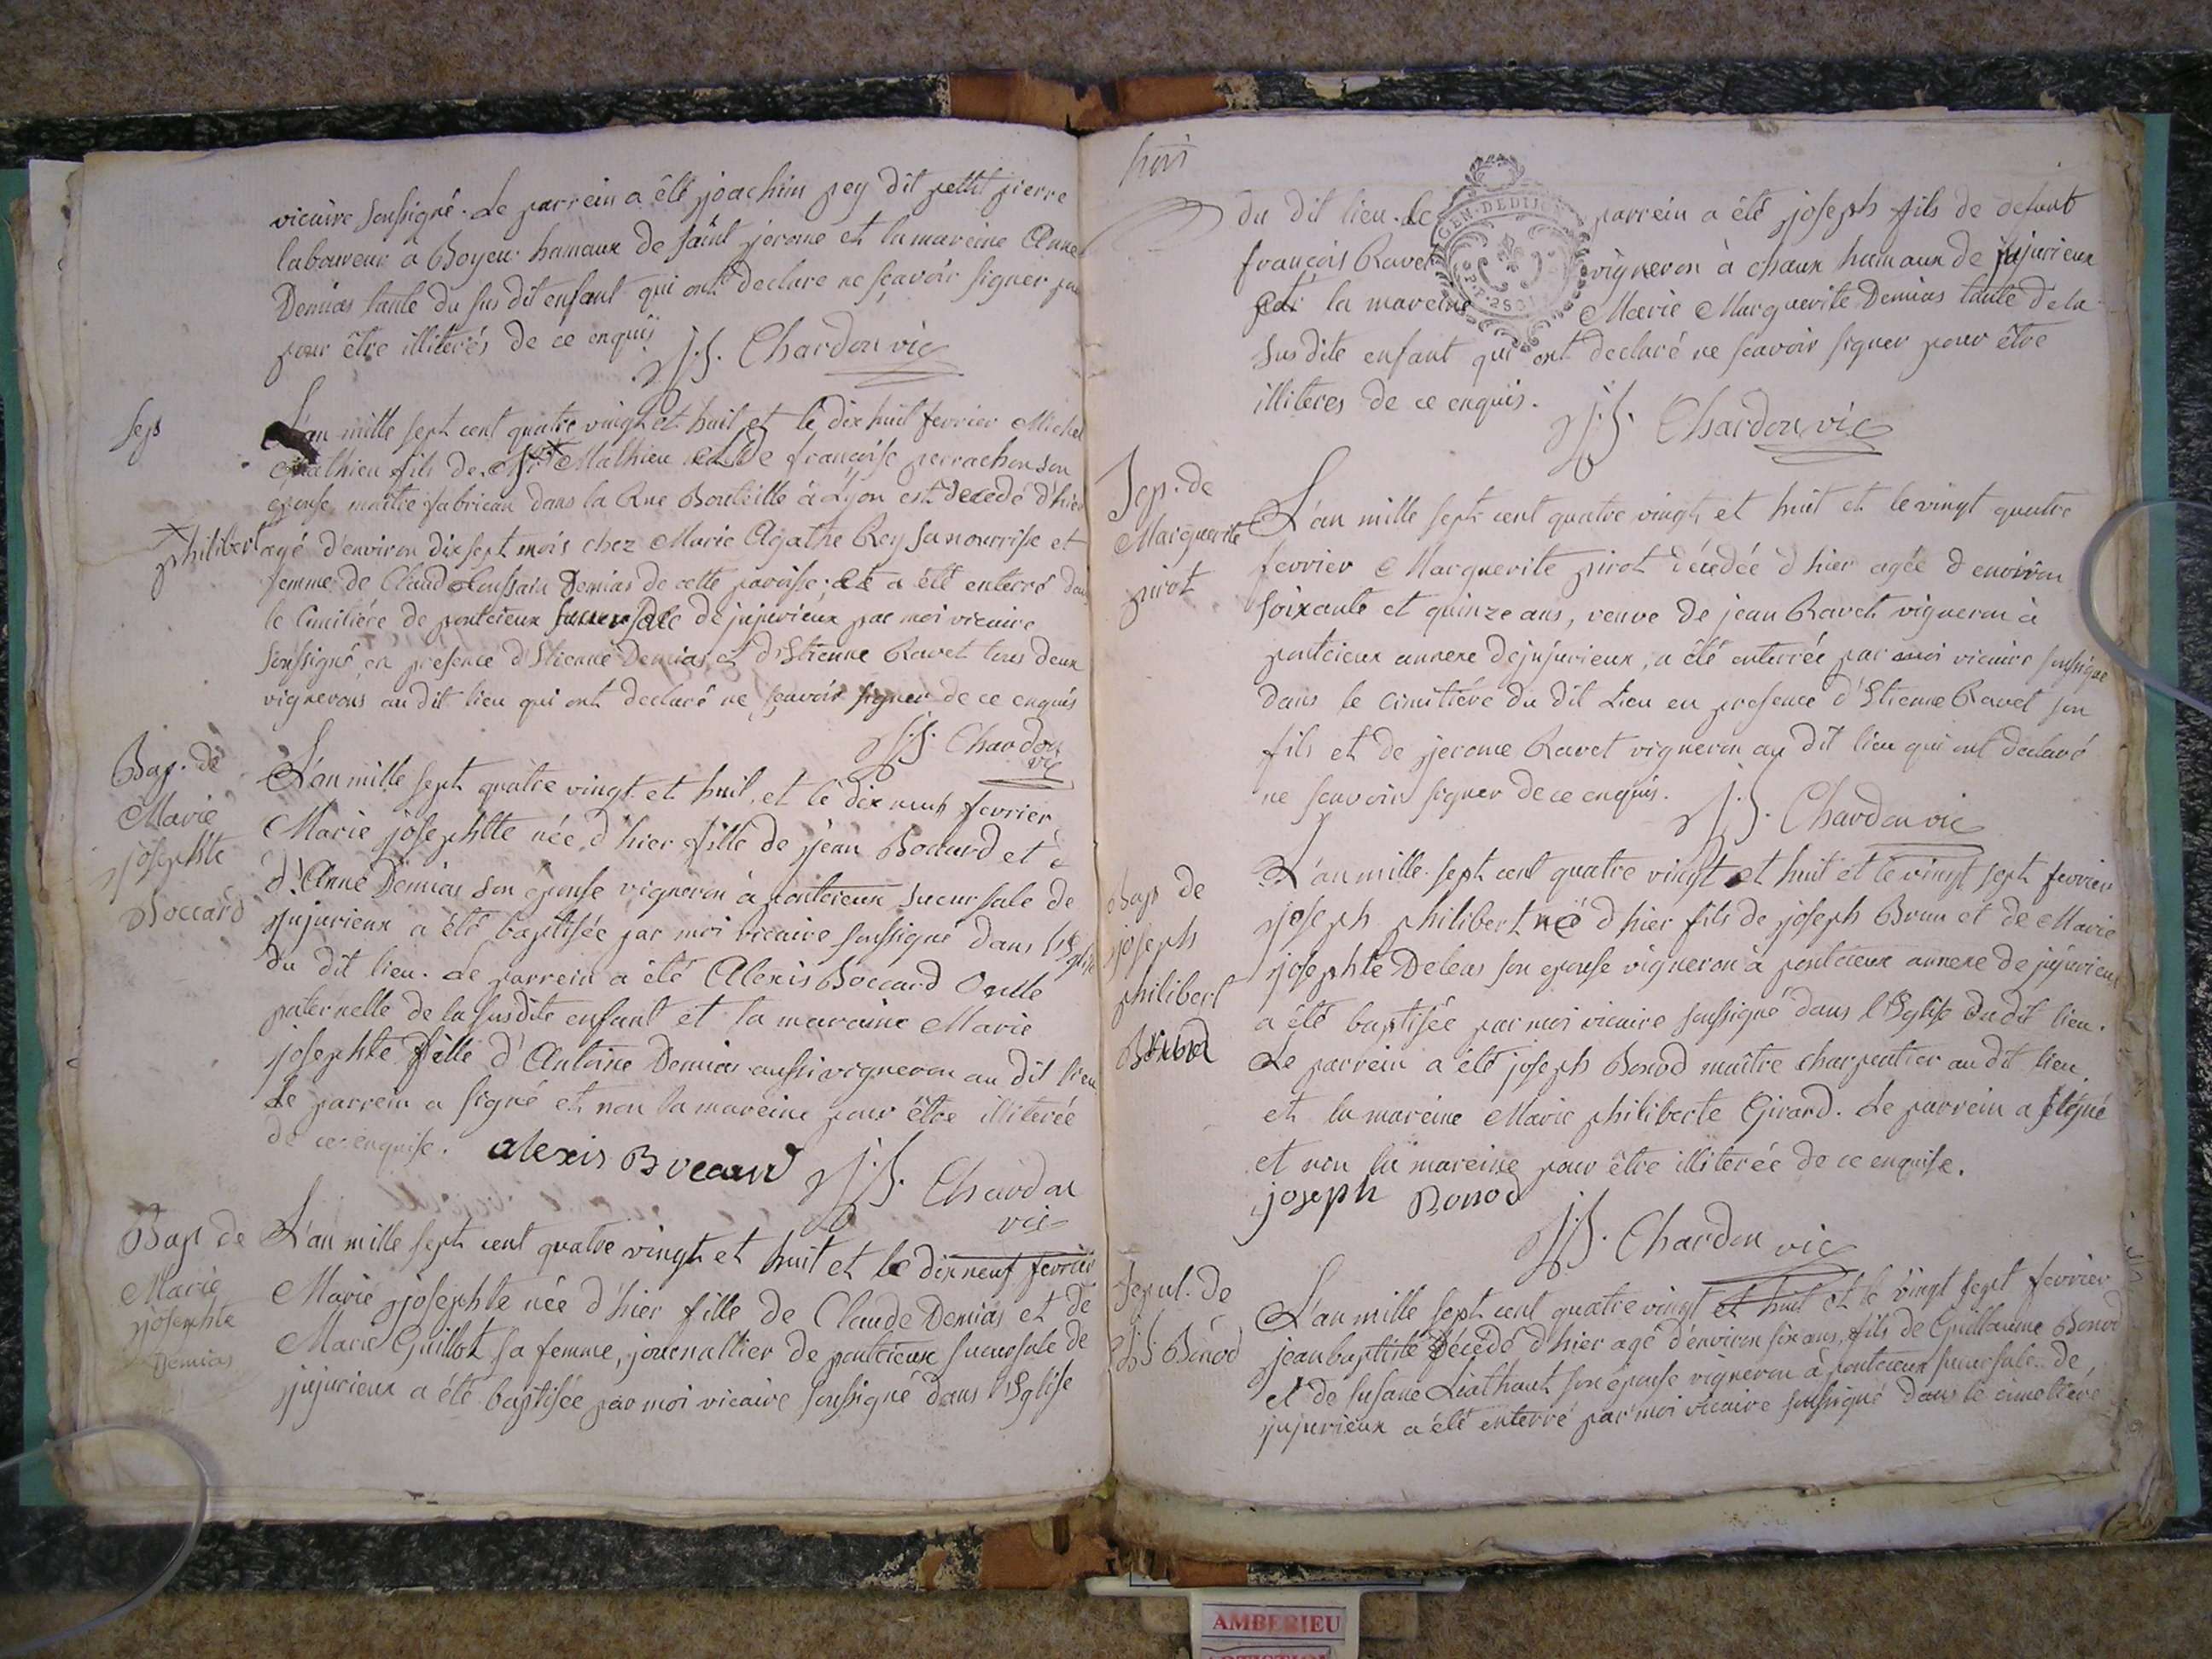 vicaire soussigné. Le parrein a été joachim pey dit petit pierre
laboureur a Boyeu hamaux de saint jerome et la mareine Anne
Demias tante du sus dit enfant qui ont declare ne sçavoir signer
pour être illiterés de ce enquis
j.f. Chardon vic
Sep
L'an mille sept cent quatre vingt et huit et le dix huit fevrier Michel
Mathieu fils de Mathieu et de françoise perrachon son
epouse maitre fabrican dans la Rue Bouteille à Lyon est decedé d'hier
philibert
agé d'environ dix sept mois chez Marie Agathe Rey sa nourrisse et
femme de Claud Demias de cette paroisse, et a été enterré dans
le Cimitiére de pontcieux succursale de jujurieux par moi vicaire
soussigné en presence d'Etienne Demias et d'Etienne Ravet tous deux
vignerons au dit lieu qui ont declaré ne sçavoir signer de ce enquis
j.f. Chardon
vic
Bap. de
Marie
josephte
Boccard
L'an mille sept quatre vingt et huit, et le dix neuf fevrier
Marie josephte née d'hier fille de jean Bocard et
d'Anne Demias son epouse vigneron à pontcieux sucursale de
jujurieux a été baptisée par moi vicaire soussigné dans l'Eglise
du dit lieu. Le parrein a été Alexis Boccard Oncle
paternelle de la susdite enfant et la maraine Marie
josephte fille d'Antoine Demias aussi vigneron au dit lieu
Le parrein a signé et non la mareine pour être illiterée
de ce enquise. alexis Bocard j.f. Chardon
vic
Bap de
Marie
josephte
Demias
L'an mille sept cent quatre vingt et huit et le dix neuf fevrier
Marie josephte née d'hier fille de Claude Demias et de
Marie Guillot sa femme, journallier de pontcieux sucursale de
jujurieux a été baptisée par moi vicaire soussigné dans l'Eglise
du dit lieu. Le parrein a été joseph fils de defunt
françois Ravet vigneron à chaux hamaux de jujurieux
et la mareine Marie Marguerite Demias tante de la
sus dite enfant qui ont declaré ne scavoir signer pour être
illiteres de ce enquis.
j.f. Chardon vic
Sep. de
Marguerite
pirot
L'an mille sept cent quatre vingt et huit et le vingt quatre
fevrier Marguerite pirot décedée d'hier agée d'environ
soixante et quinze ans, veuve de jean Ravet vigneron à
pontcieux annexe de jujurieux, a été enterrée par moi vicaire soussigné
dans le cimitiére du dit Lieu en presence d'Etienne Ravet son
fils et de jerome Ravet vigneron au dit lieu qui ont declaré
ne scavoir signer de ce enquis.
j.f. Chardon vic
Bap de
joseph
philibert
L'an mille sept cent quatre vingt et huit et le vingt sept fevrier
joseph philibert né d'hier fils de joseph Brun et de Marie
josephte Deleas son epouse vigneron à pontcieux annexe de jujurieux
a été baptisée par moi vicaire soussigné dans l'Eglise du dit lieu.
Le parrein a été joseph Bonod maître charpentier au dit lieu
et la mareine Marie philiberte Girard. Le parrein a signé
et non la mareine pour être illiterée de ce enquise.
joseph Bonod
j.f. Chardon vic
Sepul. de
Bonod
L'an mille sept cent quatre vingt et huit et le vingt sept fevrier
jean baptiste décedé d'hier agé d'environ six ans, fils de Guillaume Bonod
et de susane Liathaut son épouse vigneron à pontcieux sucursale de
jujurieux a été enterré par moi vicaire soussigné dans le cimetiére
AMBERIEU